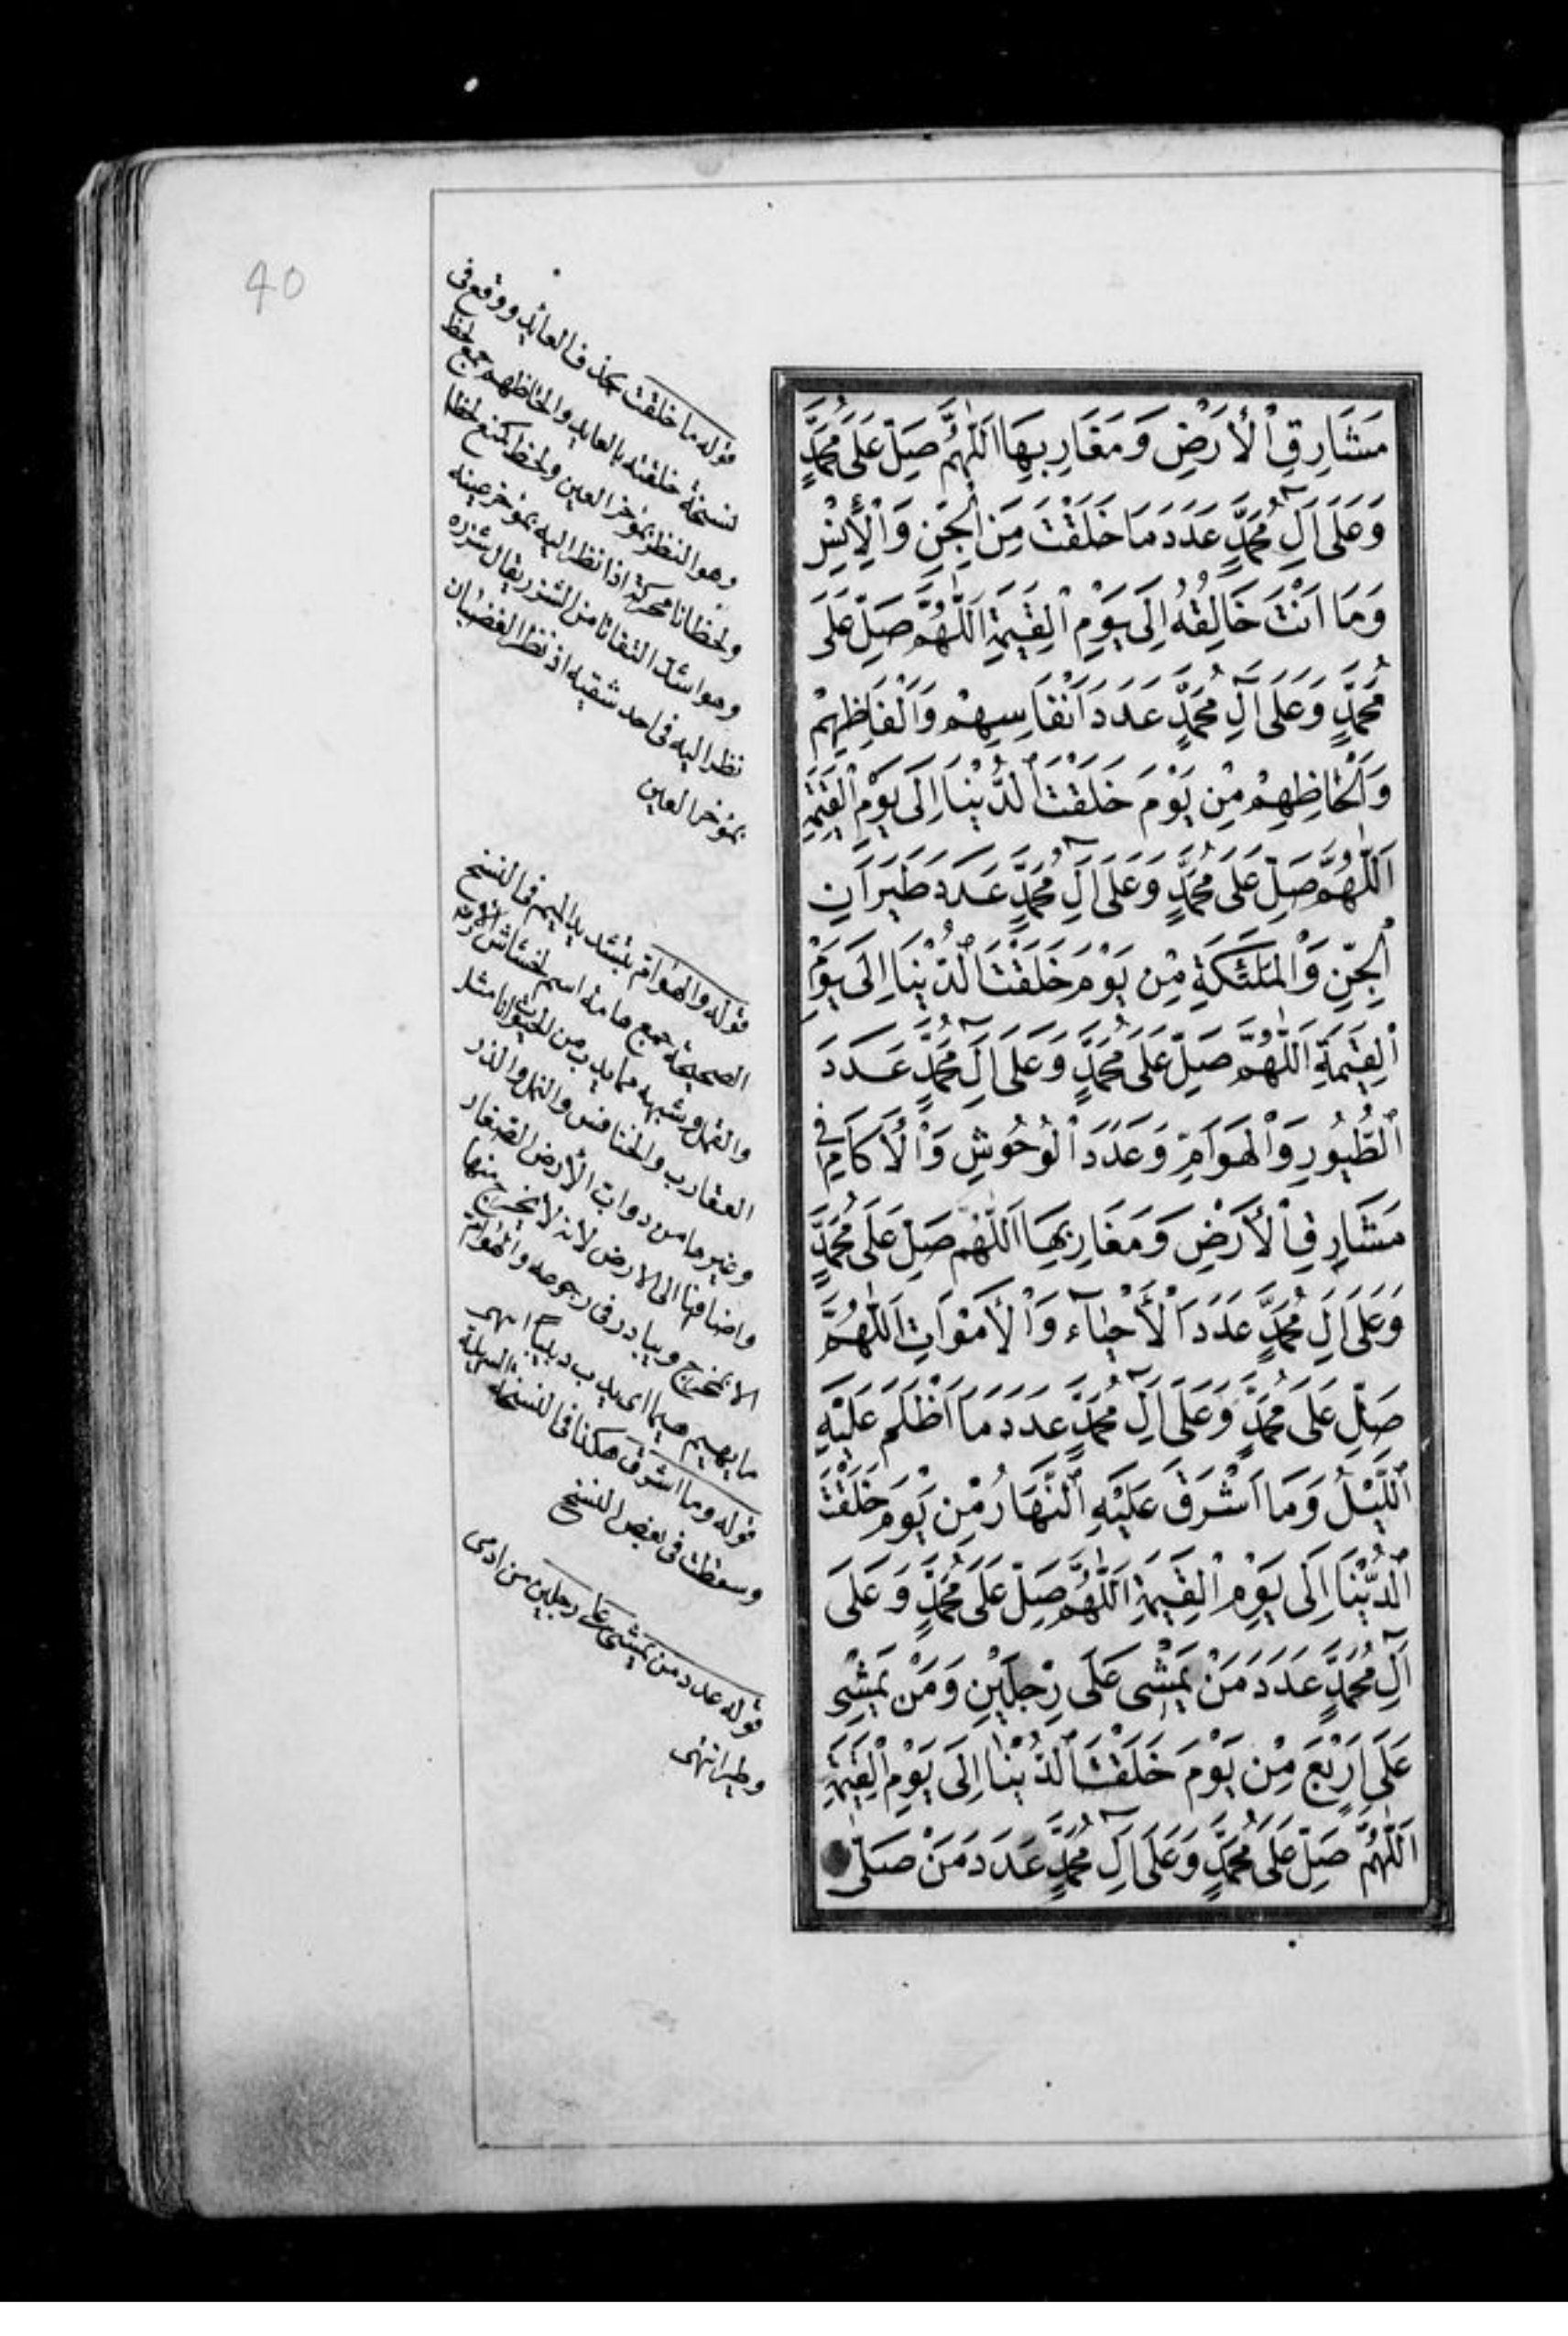 40
مَشَارِقِ ٱلْأَرْضِ وَمَغَارِبِهَا اَللّٰهُمَّ صَلِّ عَلَى مُحَمَّدٍ
وَعَلَى اٰلِ مُحَمَّدٍ عَدَدَ مَا خَلَقْتَ مِنَ ٱلْجِنِّ وَٱلْأِنْسِ
وَمَا اَنْتَ خَالِقُهُ اِلَى يَوْمِ ٱلْقِيٰمَةِ اَللّٰهُمَّ صَلِّ عَلَى
مُحَمَّدٍ وَعَلَى اٰلِ مُحَمَّدٍ عَدَدَ اَنْفَاسِهِمْ وَاَلْفَاظِهِمْ
وَاَلْحَاظِهِمْ مِنْ يَوْمَ خَلَقْتَ ٱلدُّنْيَا اِلَى يَوْمِ ٱلْقِيٰمَةِ
اَللّٰهُمَّ صَلِّ عَلَى مُحَمَّدٍ وَعَلَى اٰلِ مُحَمَّدٍ عَدَدَ طَيَرَانِ
ٱلْجِنِّ وَٱلْمَلٰئِكَةِ مِنْ يَوْمَ خَلَقْتَ ٱلدُّنْيَا اِلَى يَوْمِ
ٱلْقِيٰمَةِ اَللّٰهُمَّ صَلِّ عَلَى مُحَمَّدٍ وَعَلَى اٰلِ مُحَمَّدٍ عَدَدَ
ٱلطُّيُورِ وَٱلْهَوَامِّ وَعَدَدَ ٱلْوُحُوشِ وَٱلْأَكَامِ فِي
مَشَارِقِ ٱلْأَرْضِ وَمَغَارِبِهَا اَللّٰهُمَّ صَلِّ عَلَى مُحَمَّدٍ
وَعَلَى اٰلِ مُحَمَّدٍ عَدَدَ ٱلْأَحْيَآءِ وَٱلْأَمْوَاتِ اَللّٰهُمَّ
صَلِّ عَلَى مُحَمَّدٍ وَعَلَى اٰلِ مُحَمَّدٍ عَدَدَ مَا اَظْلَمَ عَلَيْهِ
ٱللَّيْلُ وَمَا اَشْرَقَ عَلَيْهِ ٱلنَّهَارُ مِنْ يَوْمَ خَلَقْتَ
ٱلدُّنْيَا اِلَى يَوْمِ ٱلْقِيٰمَةِ اَللّٰهُمَّ صَلِّ عَلَى مُحَمَّدٍ وَعَلَى
اٰلِ مُحَمَّدٍ عَدَدَ مَنْ يَمْشِى عَلَى رِجْلَيْنِ وَمَنْ يَمْشِى
عَلَى اَرْبَعٍ مِنْ يَوْمَ خَلَقْتَ ٱلدُّنْيَا اِلَى يَوْمِ ٱلْقِيٰمَةِ
اَللّٰهُمَّ صَلِّ عَلَى مُحَمَّدٍ وَعَلَى اٰلِ مُحَمَّدٍ عَدَدَ مَنْ صَلَّى
قوله ما خلقت بحذف العايد ووقع فى
نسخة خلقته بالعايد والحاظهم جمع لحظ
وهو النظر بمؤخر العين ولحظ كمنع لحظا
ولحظانا محركة اذا نظر اليه بمؤخر عينه
وهو اشد التفاتا من الشزر يقال شزره
نظر اليه فى احد شقيه اذ نظر الغضبان
بمؤخر العين
قوله والهوام بتشديد الميم فى النسخ
الصحيحة جمع هامة اسم لخشاش الارض
والقمل وشبهه مما يدب من الحيوانات مثل
العقارب والخنافس والنمل والذر
وغيرها من دواب الأرض الصغار
واضافتها الى الارض لانه لا يخرج منها
الا بمخرج ويبادر فى رجوعه والهوام
ما يهيم هيما اى يدب دبيبا انتهى
قوله وما اشرق هكذا فى النسخة السهلية
وسقطت فى بعض النسخ
قوله عدد من يمشى على رجلين من ادمى
وطير انتهى